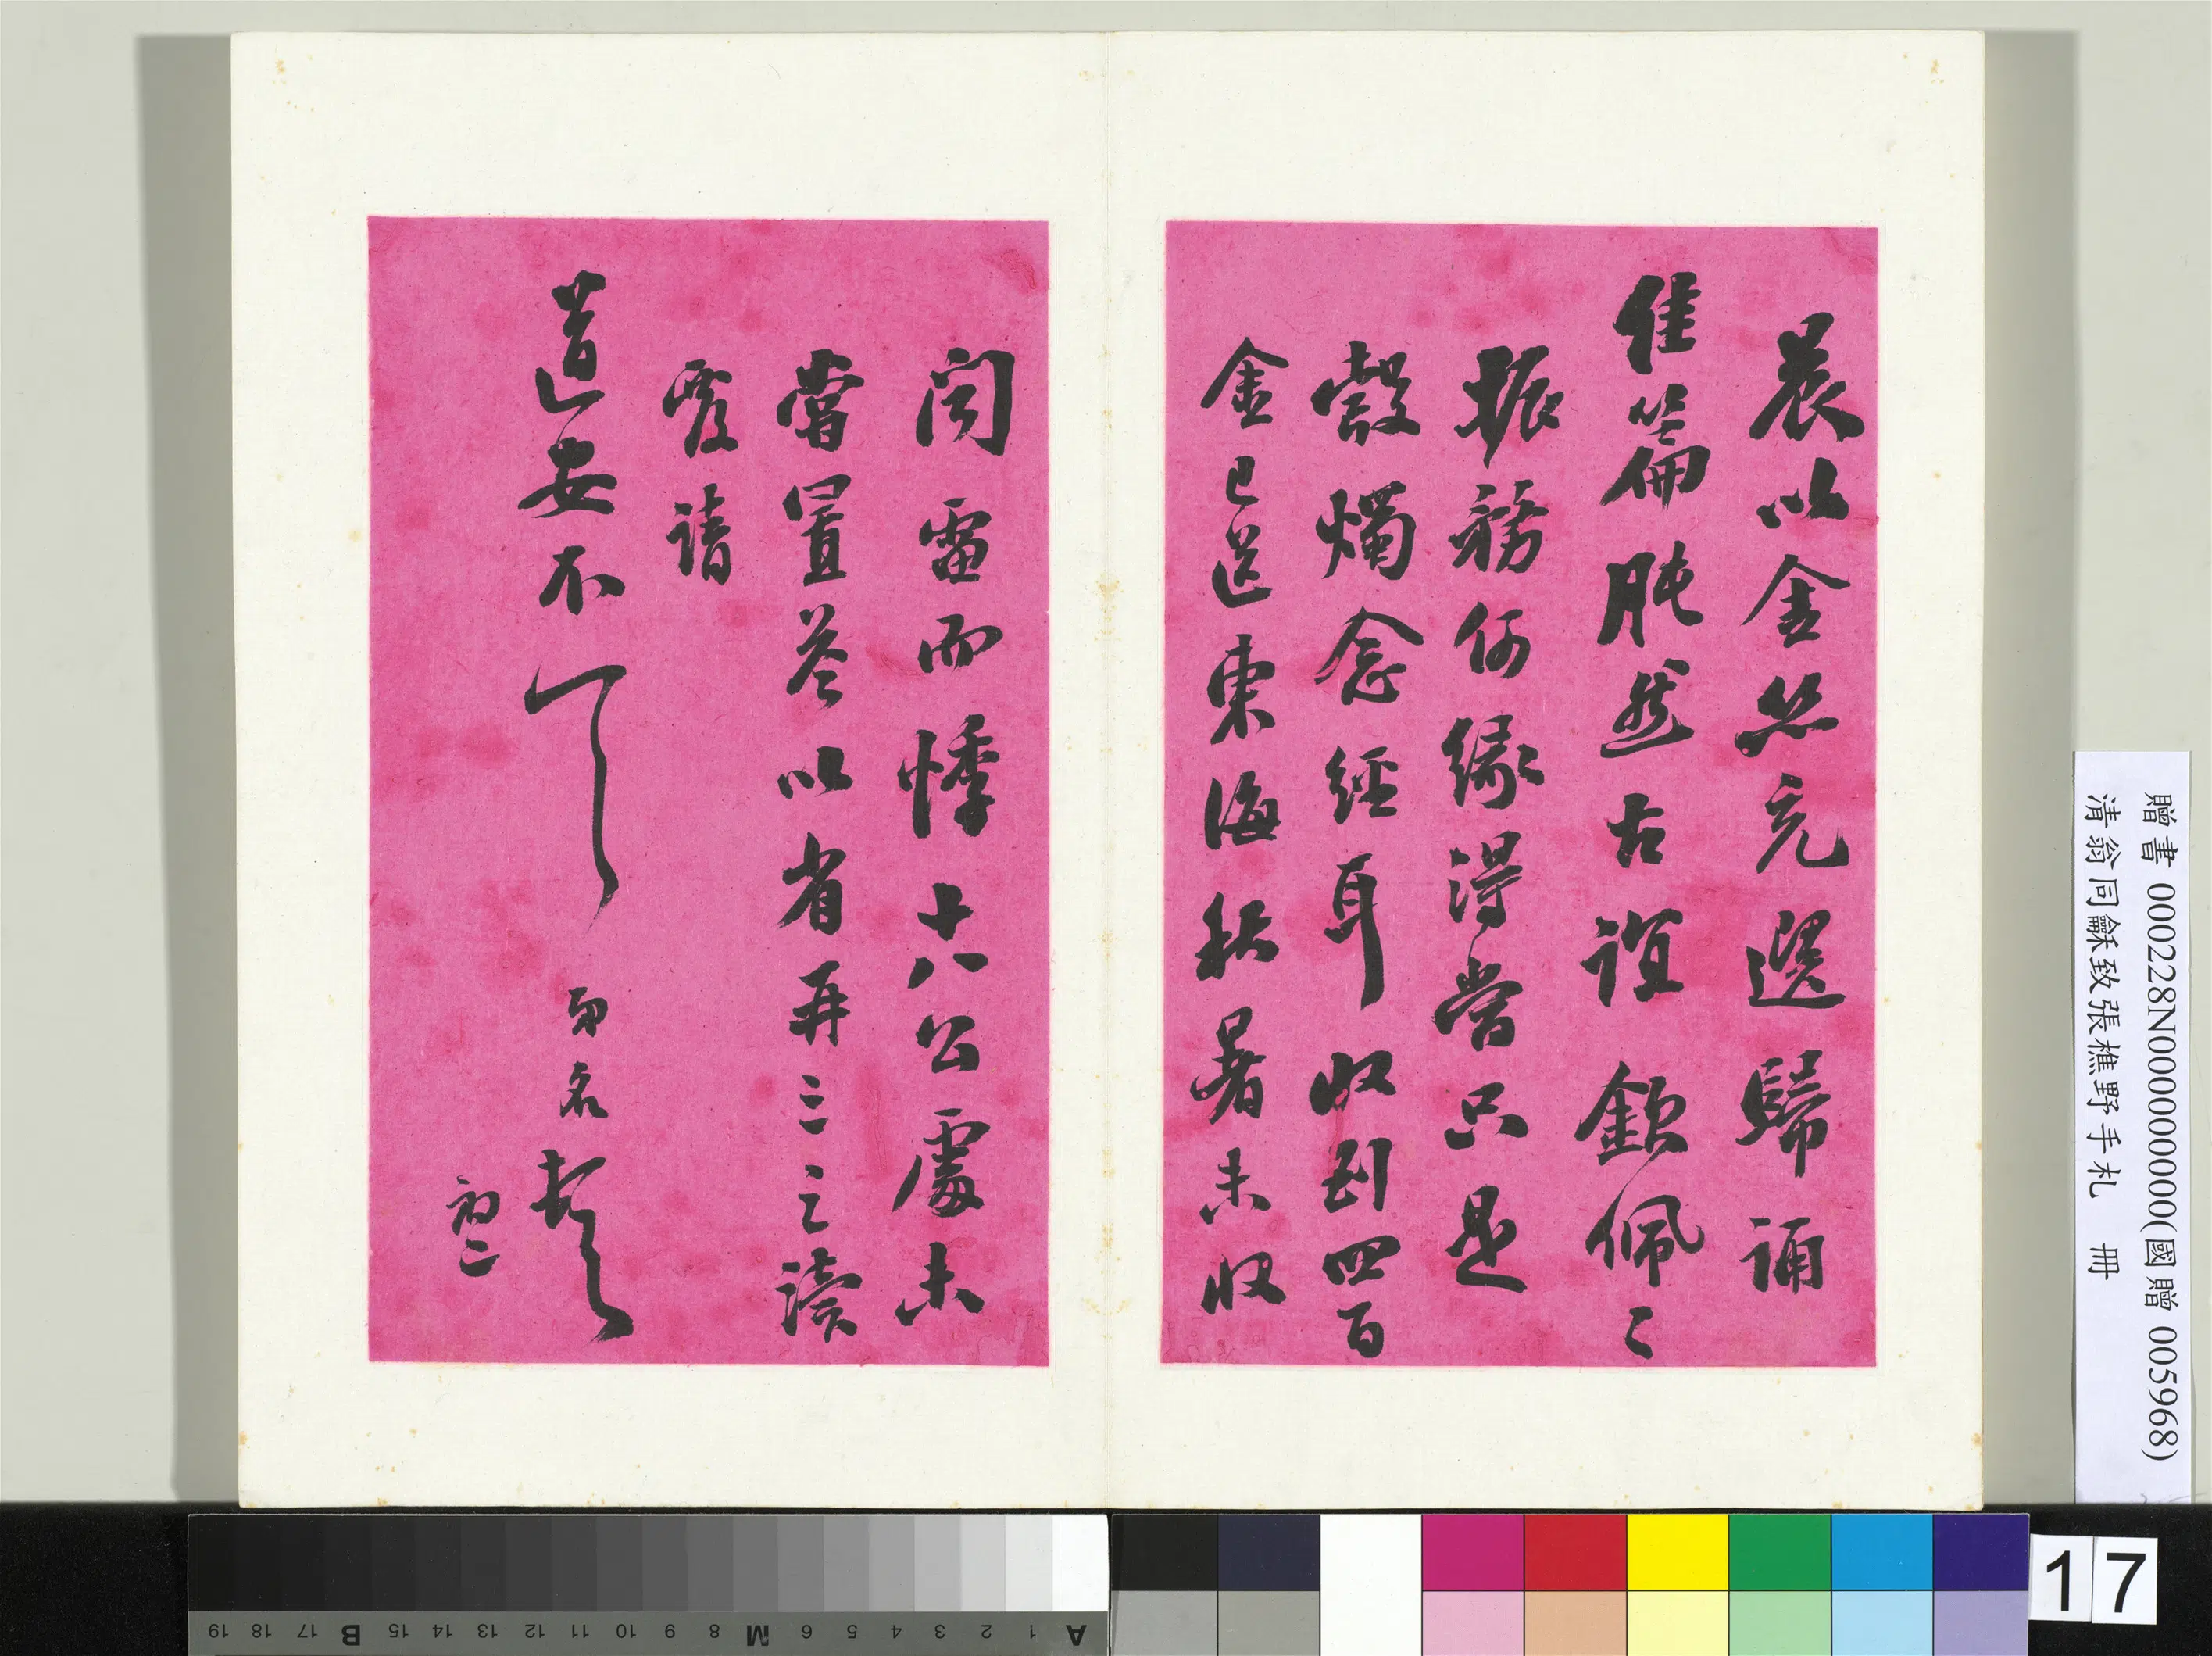 晨以金丝充選歸誦
佳篇肫然古誼欽佩〻
振務何緣得嘗只是
燭念經耳收到四百
金已送東海秋暑未收
聞雷而悸十八公處未
嘗置答以省再三之瀆
覆請
道安不一 名頓
初二
贈書 000228N000000000(國贈 005968)
清翁同龢致張樵野手札 冊
A 1 2 3 4 5 6 M 8 9 10 11 12 13 14 15 B 17 18 19
17